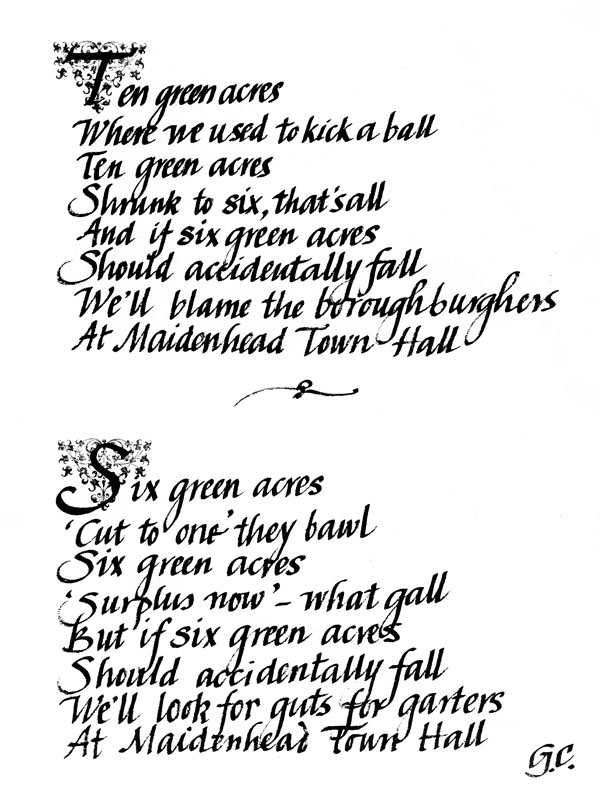 Ten green acres
Where we used to kick a ball
Ten green acres
Shrunk to six, that's all
And if six green acres
Should accidentally fall
We'll blame the borough burghers
At Maidenhead Town Hall
Six green acres
'Cut to one' they bawl
Six green acres
'Surplus now' – what gall
But if six green acres
Should accidentally fall
We'll look for guts for garters
At Maidenhead Town Hall
G.C.